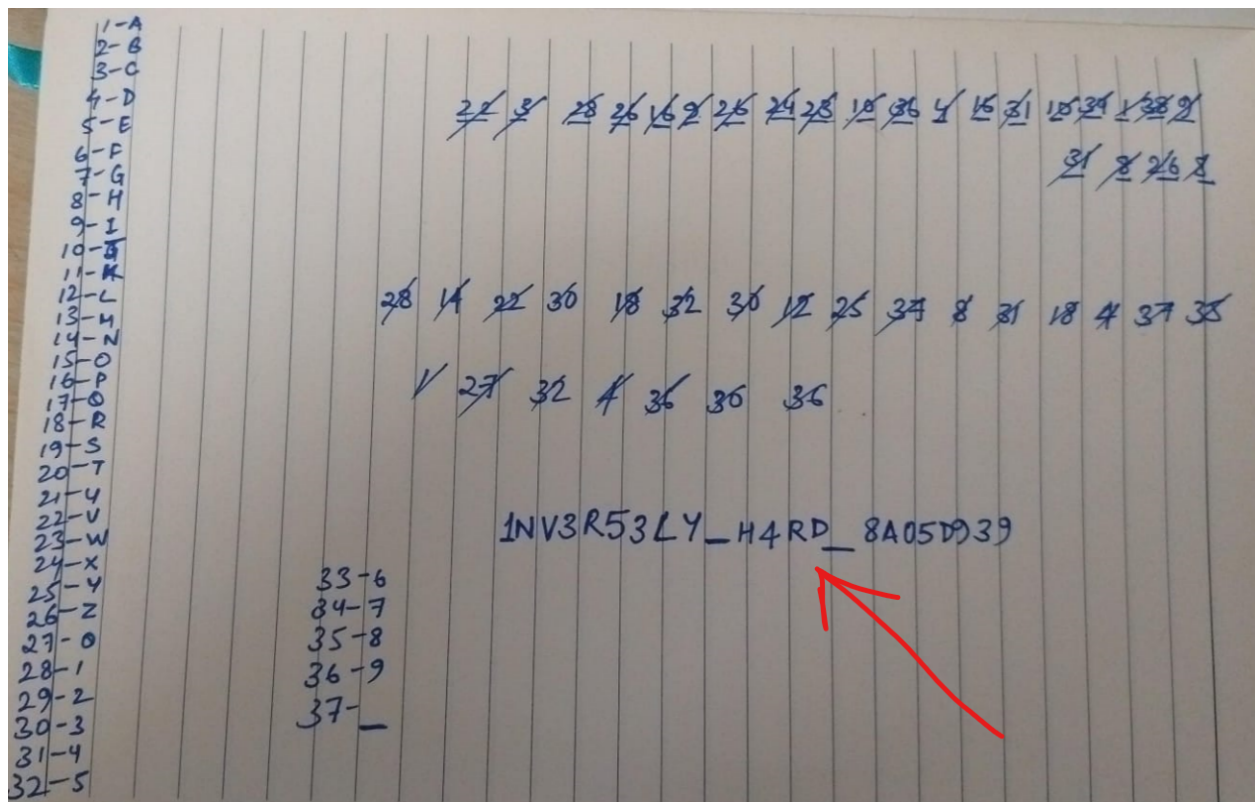 1-A
2-B
3-C
4-D
5-E
6-F
7-G
8-H
9-I
10-J
11-K
12-L
13-M
14-N
15-O
16-P
17-Q
18-R
19-S
20-T
21-U
22-V
23-W
24-X
25-Y
26-Z
27-0
28-1
29-2
30-3
31-4
32-5
33-6
34-7
35-8
36-9
37-_
31 8 26 8
28 14 22 30 18 32 30 12 25 37 8 31 18 4 37 35
1 27 32 4 36 30 36
1NV3R53LY_H4RD_8A05D939